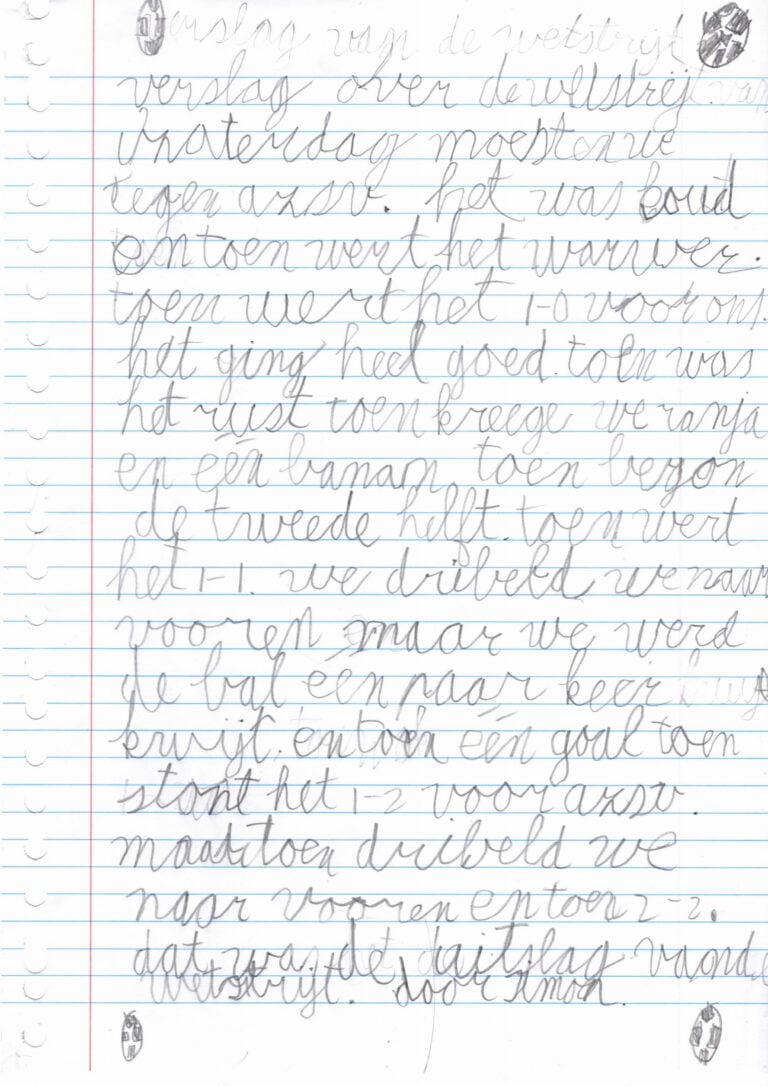 verslag van de wetstrijt
verslag over de wetstrijt van
zaterdag moesten we
tegen azsv. het was koud
en toen wert het warmer.
toen wert het 1-0 voor ons.
het ging heel goed. toen was
het rust toen kreege we ranja
en één banaan toen begon
de tweede helft. toen wert
het 1-1. we dribeld we naar
vooren maar we werd
de bal één paar keer
kwijt. en toen één goal toen
stont het 1-2 voor azsv.
maar toen dribeld we
naar vooren en toen 2-2.
dat was de uitslag van de
wetstrijt. door simon.